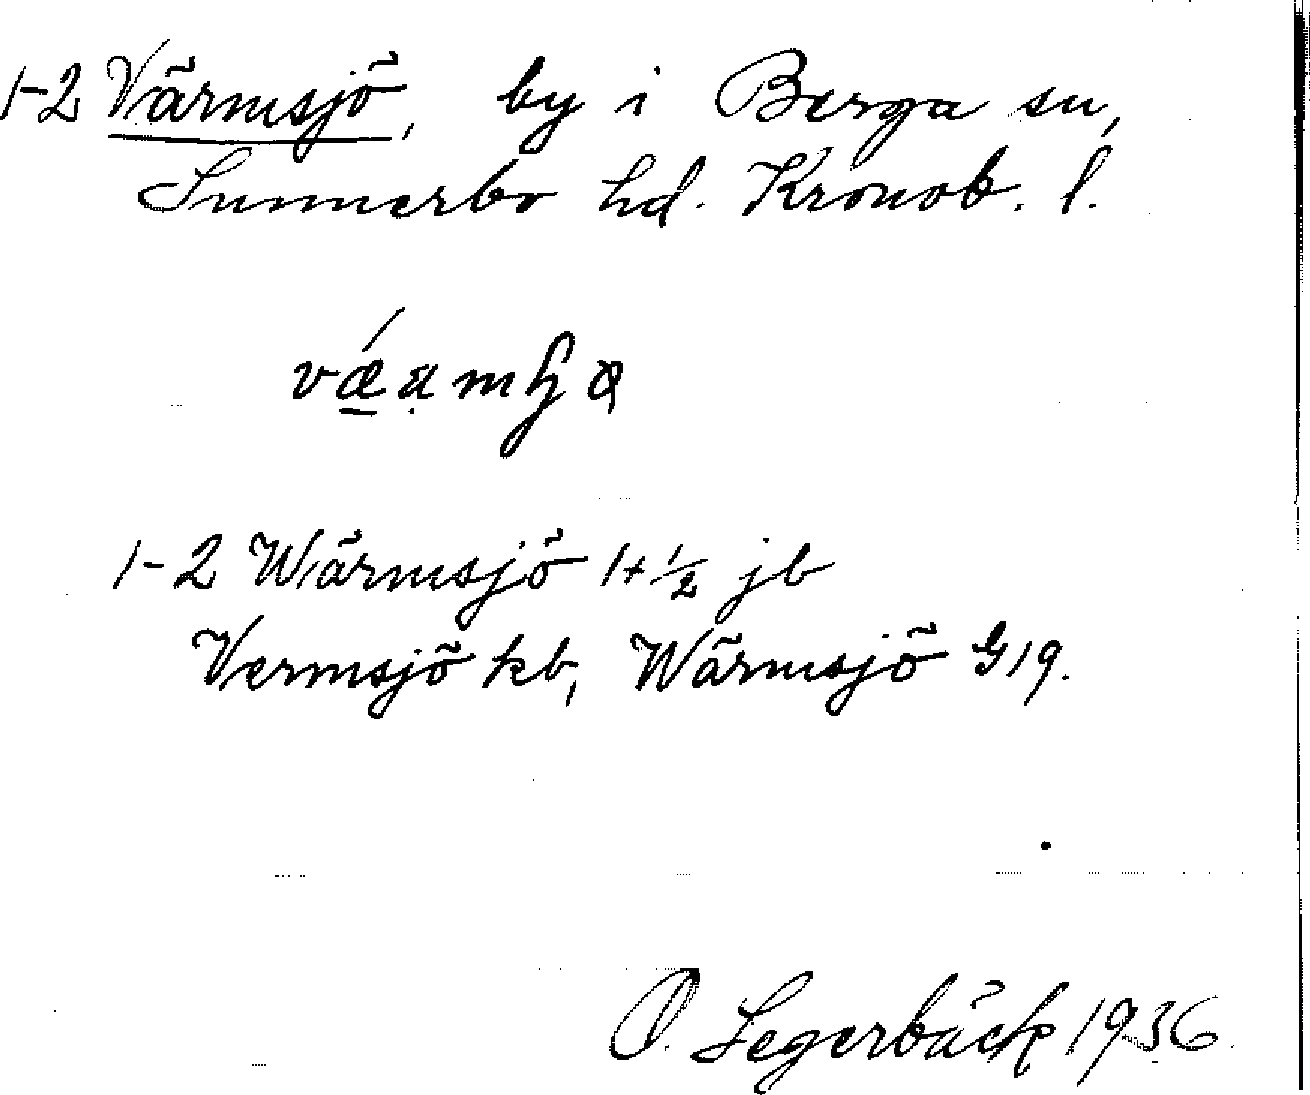 1-2 Värmsjö, by i Berga sn,
Sunnerbo hd. Kronob. l.
1-2 Wärmsjö 1+½ jb
Vermsjö kb, Wärmsjö G19.
O. Segerbäck 1936.